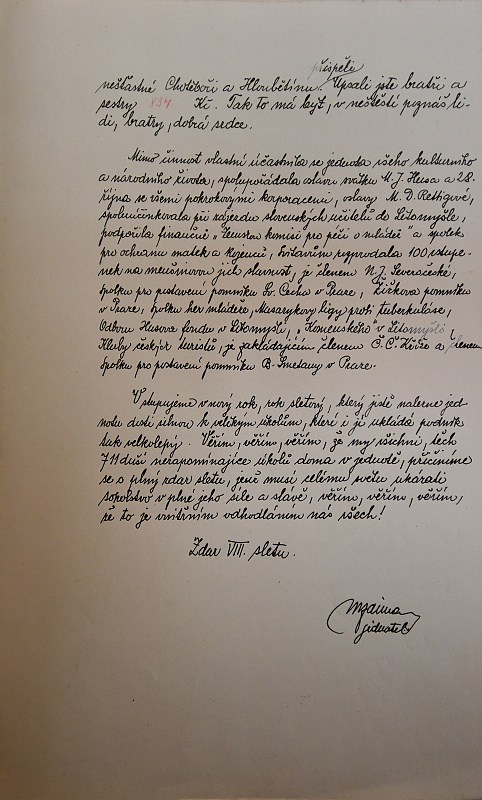 přispěli
nešťastné Chotěboři a Hloubětínu. Upsali jste bratři a
sestry 834 Kč. Tak to má být, v neštěstí poznáš li-
di, bratry, dobrá srdce.
Mimo činnost vlastní účastnila se jednota všeho kulturního
a národního života, spolupořádala oslavu svátku M. J. Husa a 28.
října se všemi pokrokovými korporacemi, oslavy M. D. Rettigové,
spoluúčinkovala při zájezdu slovenských učitelů do Litomyšle,
podpořila finančně „Zemskou komisi pro péči o mládež" a spolek
pro ochranu matek a kojenců, Svitavám rozprodala 100 vstupe-
nek na tamější jich slavnost, je členem N. J. Severočeské,
spolku pro postavení pomníku Sv. Čecha v Praze, Žižkova pomníku
v Praze, spolku her mládeže, Masarykovy ligy proti tuberkulose,
Odboru Husova fondu v Litomyšli, „Komenského" v Litomyšli
Klubu českých turistů, je zakládajícím členem Č. Č. Kříže a členem
spolku pro postavení pomníku B. Smetany v Praze.
Vstupujeme v nový rok, rok sletový, který jistě nalezne jed
notu dosti silnou k velikým úkolům, které i jí ukládá podnik
tak velkolepý. Věřím, věřím, věřím, že my všichni, těch
711 duší nezapomínajíce úkolů doma v jednotě, přičiníme
se o plný zdar sletu, jenž musí celému světu ukázati
sokolstvo v plné jeho síle a slávě, věřím, věřím, věřím,
že to je vnitřním odhodláním nás všech!
Zdar VIII. sletu.
jednatel